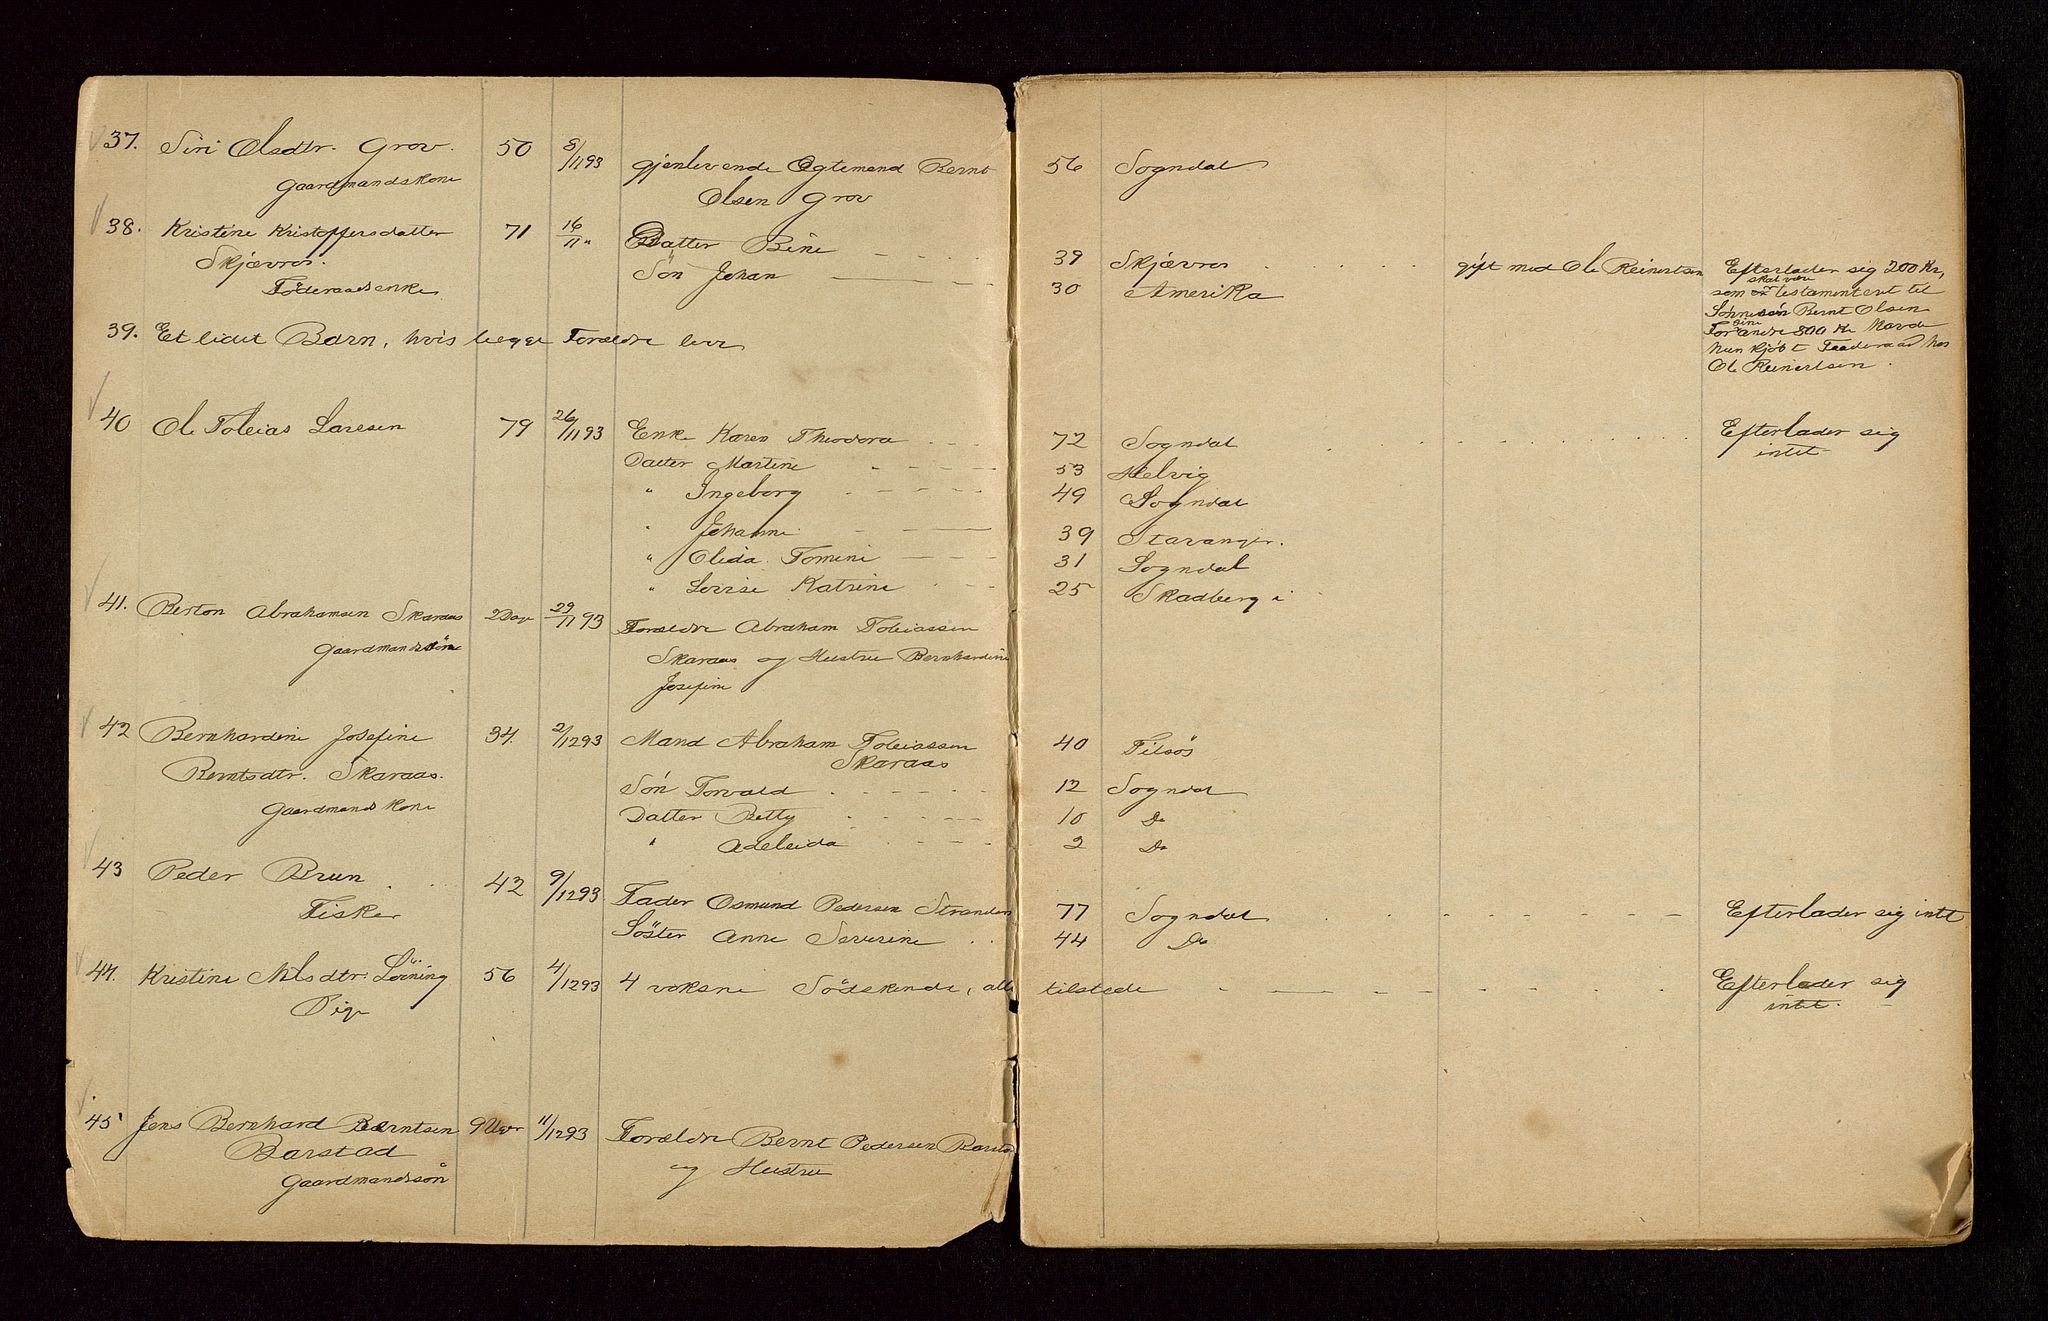 37. Siri Olsdtr. Grov. 50 8/11 93 gjenlevende Ægtemand Bernt 56 Sogndal
Gaardmandskone Olsen Grov
38. Kristine Kristoffersdatter 71 16/11 " Datter Bine 39 Skjævros gift med Ole Reinertsen Efterlader sig 200 Kr,
Skjævros. Søn Johan 30 Amerika som skal være testamenteret til
Föderaadsenke Sønnesøn Bernt Olsen
For sine andre 800 Kr havde
hun kjöbt Føderaad hos
Ole Reinertsen.
39. Et lidet Barn, hvis begge Forældre leve
40 Ole Tobias Larsen 79 26/11 93 Enke Karen Theodora 72 Sogndal Efterlader sig
intet
Datter Martine 53 Helvig
" Ingeborg 49 Sogndal
" Johanne 39 Stavanger.
" Olida Tomine 31 Sogndal
" Lovise Katrine 25 Skadberg i
41. Berton Abrahamsen Skaraas 2 Dage 29/11 93 Forældre Abraham Tobiassen
Gaardmandssøn Skaraas og Hustru Bernhardine
Josefine
42 Bernhardine Josefine 34. 2/12 93 Mand Abraham Tobiassen 40 Filsös
Berntsdtr. Skaraas. Skaraas
Gaardmandskone Søn Torvald 12 Sogndal
Datter Betty 10 Do
" Adeleida 2 Do
43 Peder Brun 42 9/12 93 Fader Osmund Pedersen Stranden 77 Sogndal Efterlader sig intet
Fisker Söster Anne Severine 44 Do
44. Kristine Nilsdtr. Løining 56 4/12 93 4 voksne Södskende, alle tilstede Efterlader sig
Pige intet.
45 Jens Bernhard Berntsen 9 Uger 11/12 93 Forældre Bernt Pedersen Barstad
Barstad og Hustru
Gaardmandssön